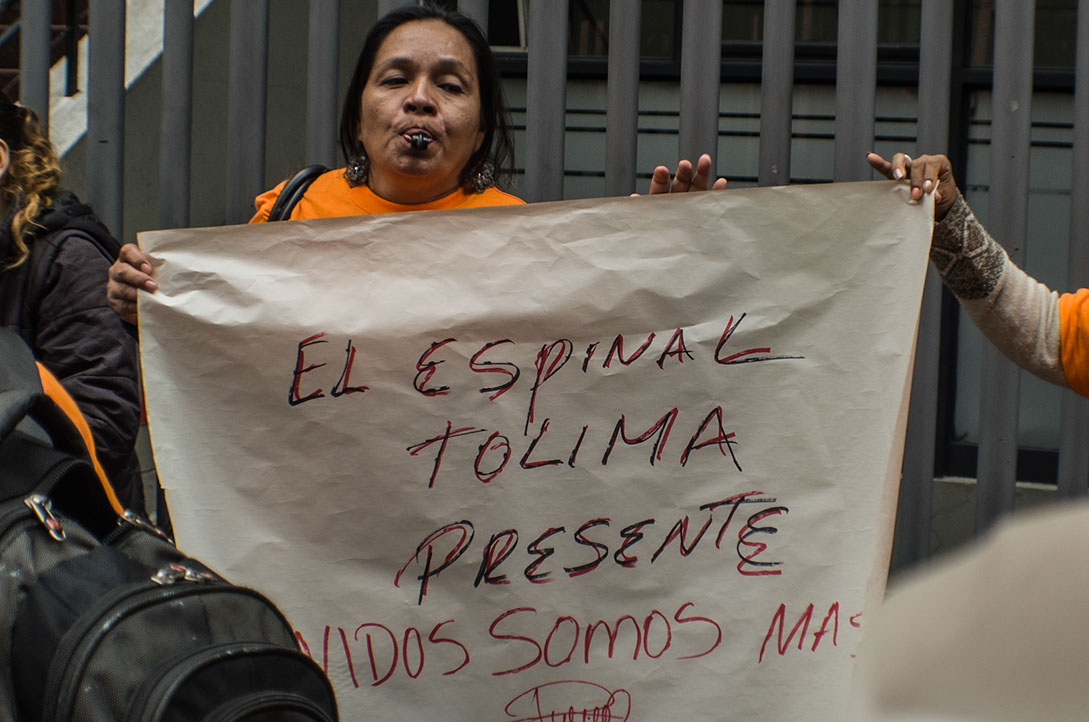 EL ESPINAL
TOLIMA
PRESENTE
NIDOS SOMOS MAS